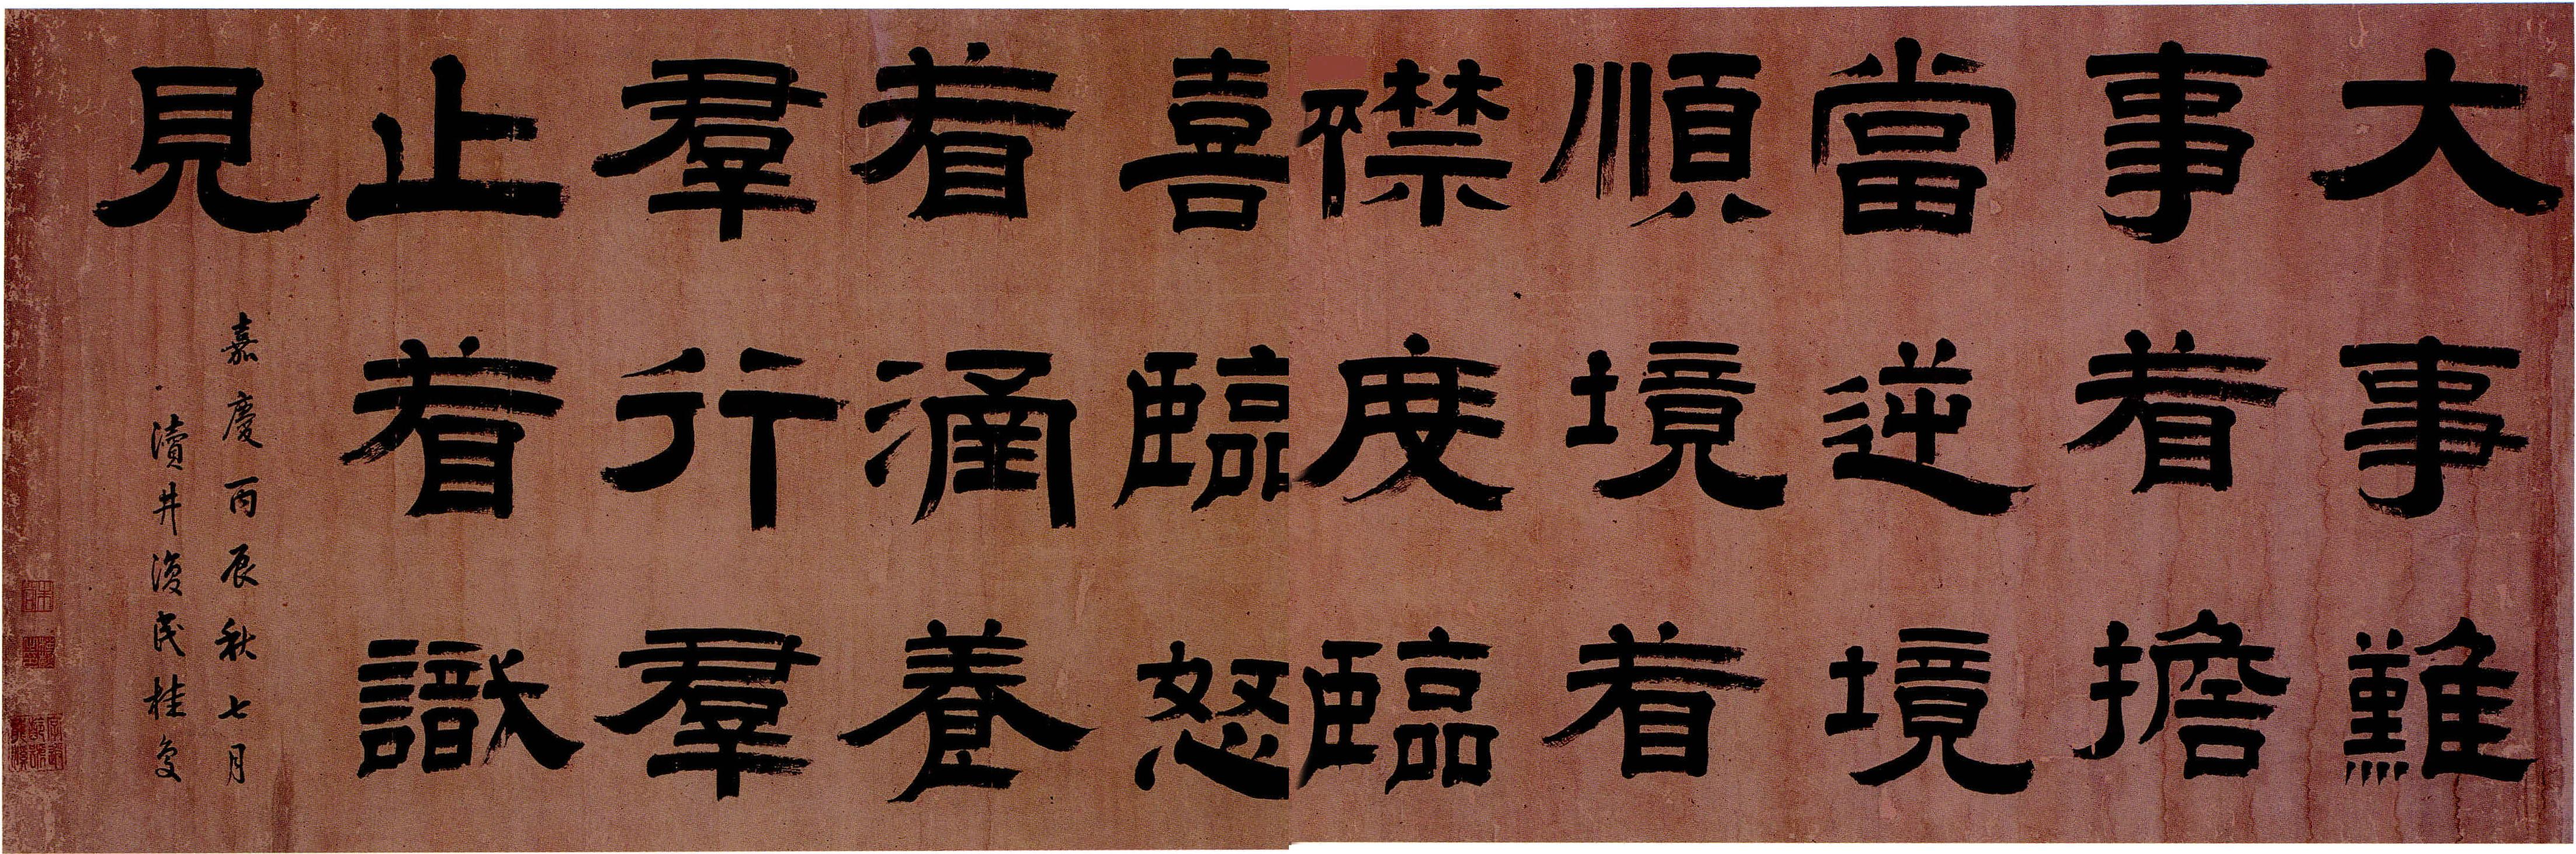 大事難
事着擔
當逆境
順境着
襟度臨
喜臨怒
着涵養
羣行羣
止着識
見
嘉慶丙辰秋七月
瀆井復民桂馥